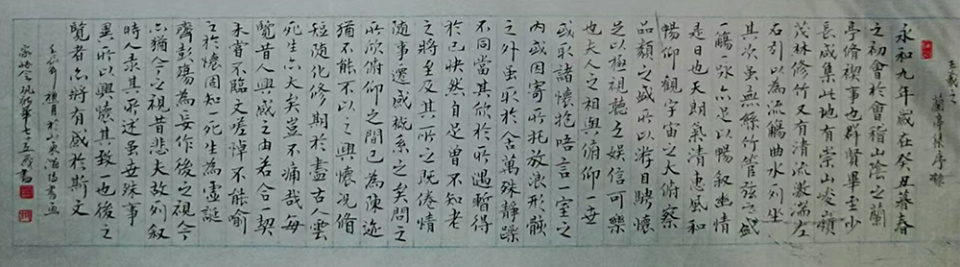 王羲之
蘭亭集序
永和九年歲在癸丑暮春
之初會於會稽山陰之蘭
亭脩禊事也群賢畢至少
長咸集此地有崇山峻嶺
茂林修竹又有清流激湍左
右引以為流觴曲水列坐
其次虽無絲竹管弦之盛
一觴一詠亦足以暢叙幽情
是日也天朗氣清惠風和
暢仰觀宇宙之大俯察
品類之盛所以游目騁懷
足以極視聽之娱信可樂
也夫人之相與俯仰一世
或取諸懷抱唔言一室之
內或因寄所托放浪形骸
之外虽取於舍萬殊靜躁
不同當其欣於所遇暫得
於己快然自足曾不知老
之將至及其所之既倦情
随事遷感概系之矣问之
所欣俯仰之間已為陳迹
猶不能不以之興懷况脩
短随化修期於盡古人雲
死生亦大矣豈不痛哉每
覽昔人興感之由若合一契
未嘗不臨文嗟悼不能喻
之於懷固知一死生為虛誕
齊彭殤為妄作後之視今
亦猶今之視昔悲夫故列叙
時人录其所述虽世殊事
異所以興懷其致一也後之
覽者亦將有感於斯文